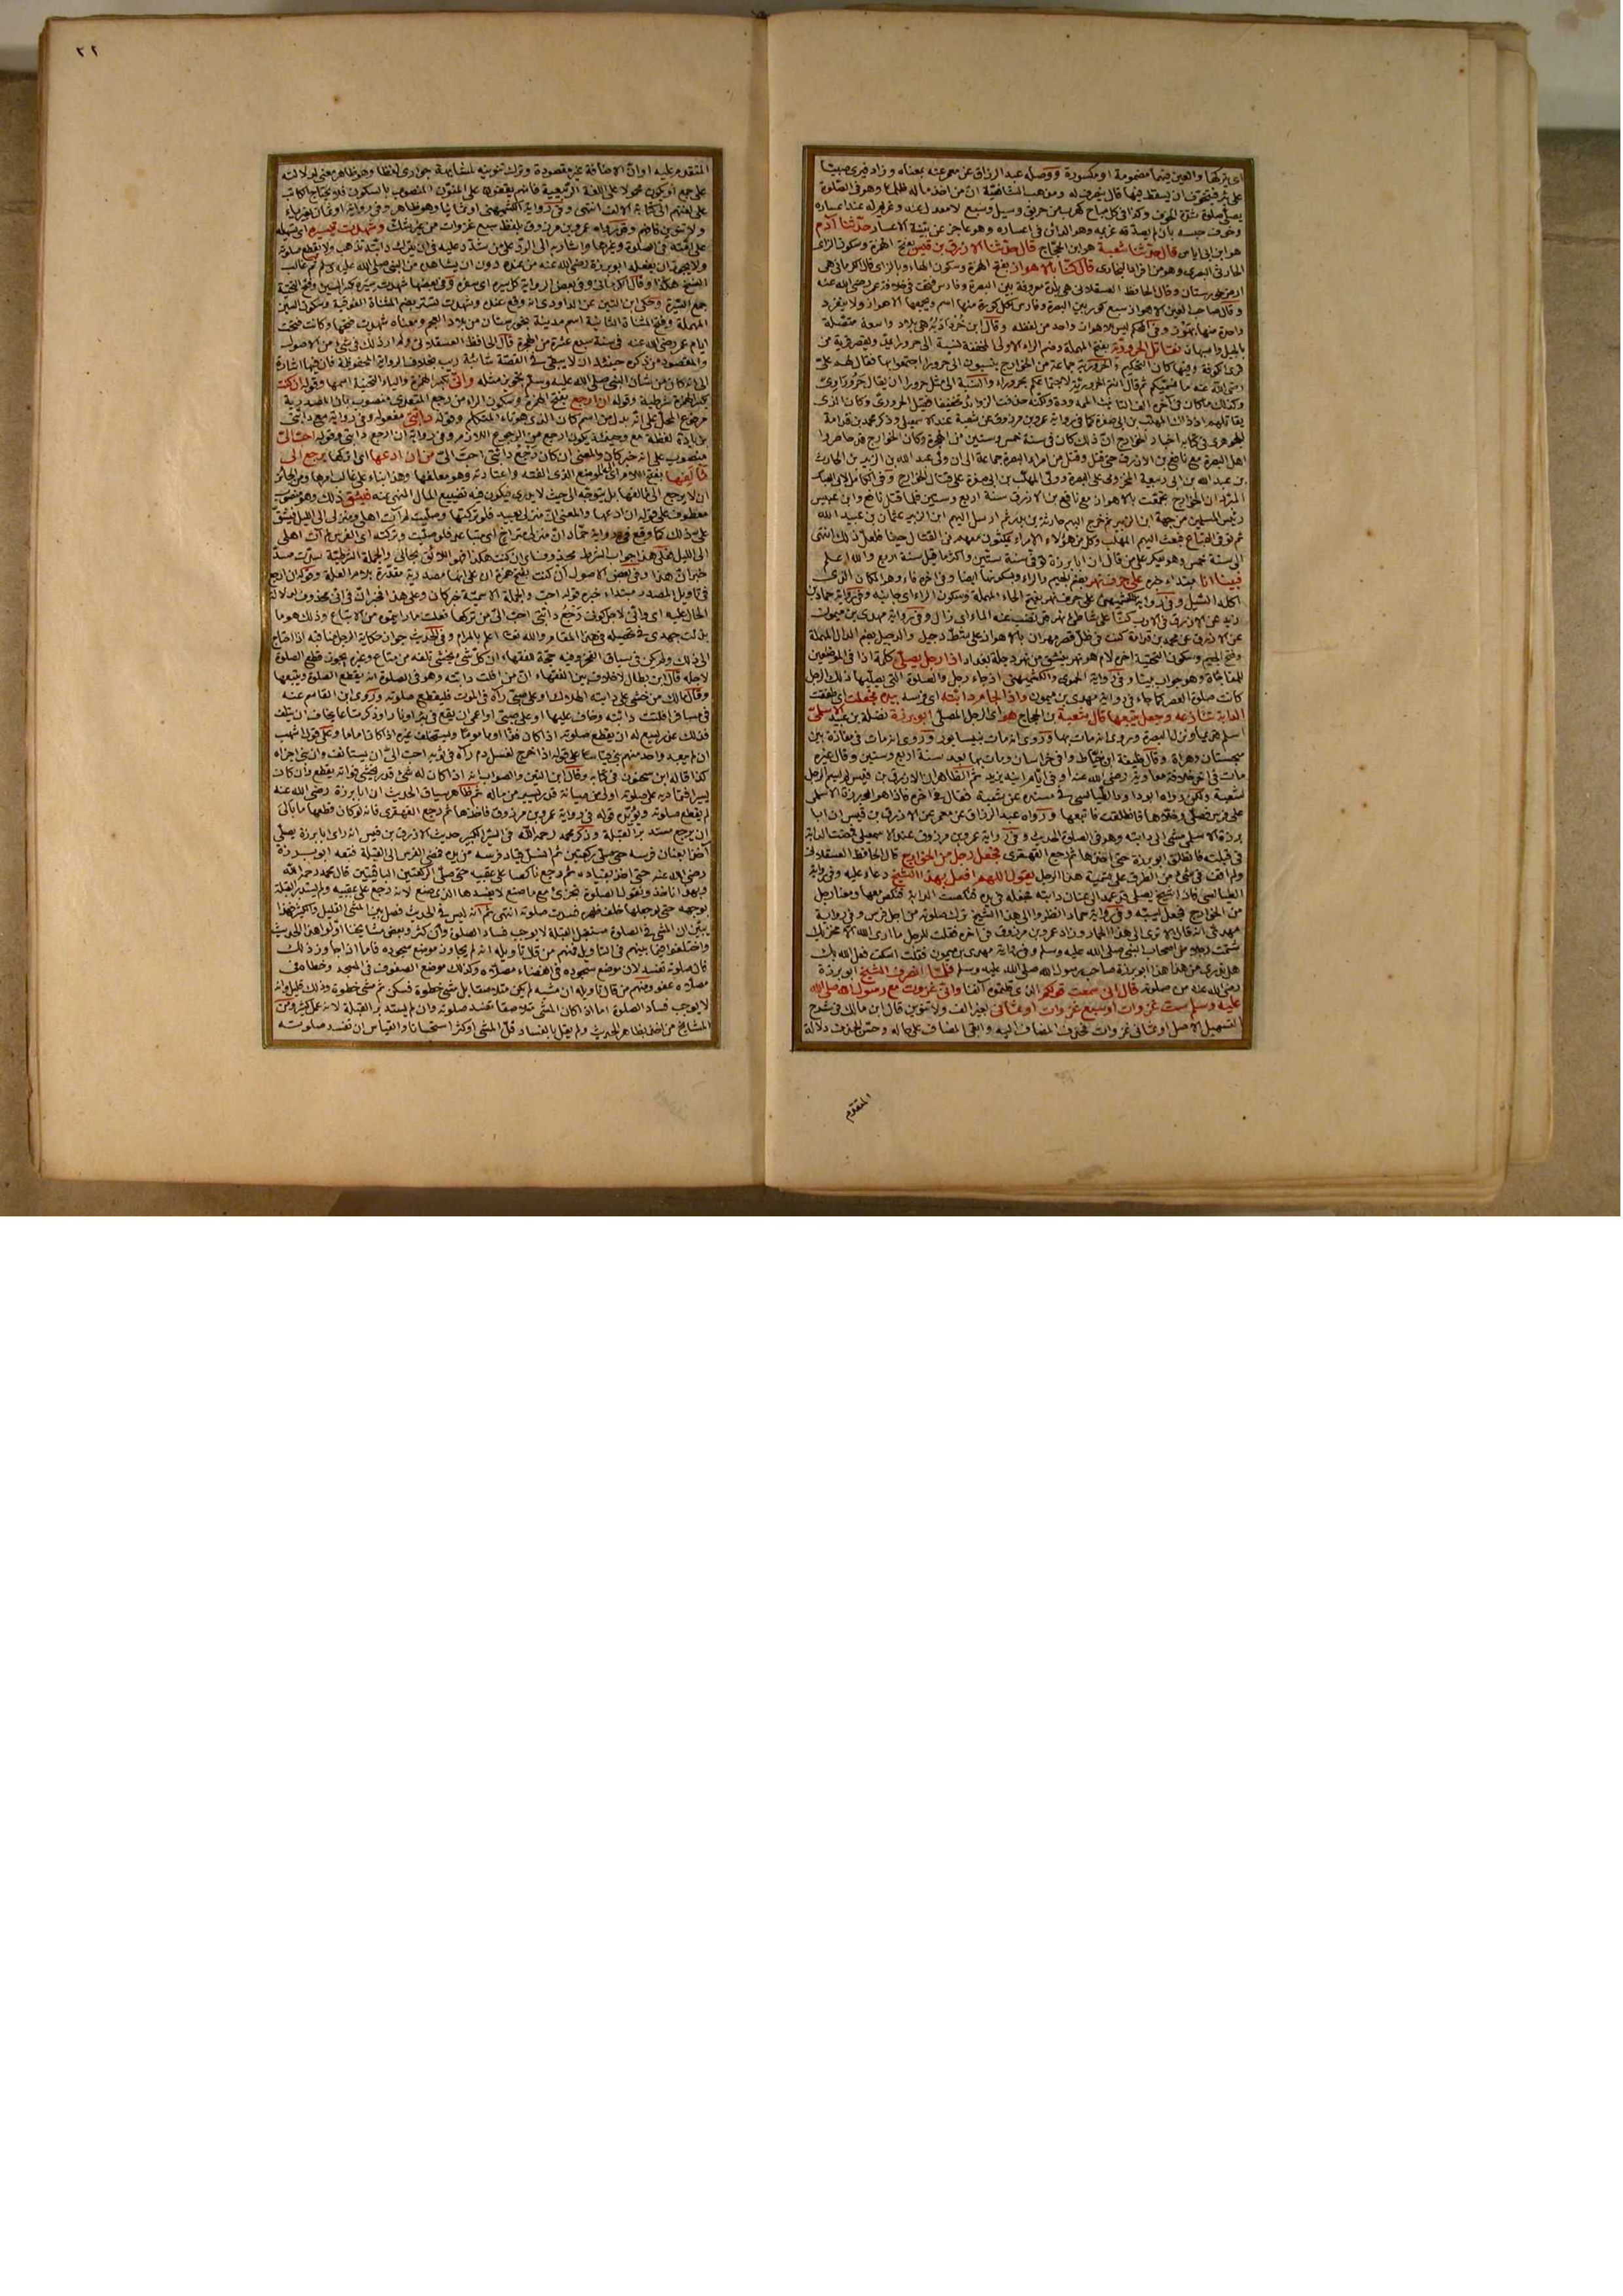 اى يتركها والعين فيهما مضمومة او مكسورة ووصله عبد الرزاق عن معمر عنه بمعناه وزاد فيرى صبيتا
على بئر فيتخوف ان يسقط فيها قال ينصرف له ومذهب الشافعية انّ من اخذ ماله ظلما وهو فى الصلوة
يصلى صلوة شدة الخوف وكذا فى كل مباح كهرب من حريق وسيل وسبع لا معدل عنه وغريم له عند اعساره
وخوف حبسه بان لم يصدقه غريمه وهو الدائن فى اعساره وهو عاجز عن بينة الاعسار حدثنا آدم
هو ابن ابى اياس قال حدثنا شعبة هو ابن الحجاج قال حدثنا الازرق بن قيس بفتح الهمزة وسكون الزاى
الحارثى البصرى وهو من افراد البخارى قال كنا بالاهواز بفتح الهمزة وسكون الهاء وبالزاى قال الكرمانى هى
ارض خوزستان وقال الحافظ العسقلانى هى بلدة معروفة بين البصرة وفارس فتحت فى خلافة عمر رضى الله عنه
وقال صاحب العين الاهواز سبع كور بين البصرة وفارس لكل كورة منها اسم ويجمعها الاهواز ولا ينفرد
واحدة منها بهوز وفى المحكم ليس للاهواز واحد من لفظه وقال ابن خرداذبه هى بلاد واسعة متصلة
بالجبل واصبهان نقاتل الحرورية بفتح المهملة وضم الراء الاولى المخففة نسبة الى حروراء
رضى الله عنه ما نسميكم ثم قال انتم الحرورية لاجتماعكم بحروراء والنسبة الى مثل حروراء ان يقال حروراوى
وكذلك ما كان فى آخره الف التأنيث الممدودة ولكنه حذفت الزوائد تخفيفا فقيل الحرورى وكان الذى
يقاتلهم اذ ذاك المهلب بن ابى صفرة كما فى رواية عمرو بن مرزوق عن شعبة عند الاسمعيلى وذكر محمد بن قدامة
الجوهرى فى كتابه اخبار الخوارج انّ ذلك كان فى سنة خمس وستين من الهجرة وكان الخوارج قد حاصروا
اهل البصرة مع نافع بن الازرق حتى قتل وقتل من امراء البصرة جماعة الى ان ولى عبد الله بن الزبير بن الحارث
بن عبد الله بن ابى ربيعة المخزومى على البصرة وولى المهلب بن ابى صفرة على قتال الخوارج وفى الكامل لابى العباس
المبرد ان الخوارج تجمعت بالاهواز مع نافع بن الازرق سنة اربع وستين فلما قتل نافع وابن عبيس
رئيس المسلمين من جهة ابن الزبير ثم خرج اليهم حارثة بن بدر ثم ارسل اليهم ابن الزبير عثمان بن عبيد الله
ثم توفى القباع فبعث اليهم المهلب وكل من هؤلاء الامراء يمكثون معهم فى القتال حينا فلعل ذلك انتهى
الى سنة خمس وهو يعكر على من قال ان ابا برزة توفى سنة ستين واكثر ما قيل سنة اربع والله اعلم
فبينا انا مبتداء خبره على جرف نهر بضم الجيم والراء وبسكونها ايضا وفى آخره فاء وهو المكان الذى
اكله السيل وفى رواية الكشميهنى على حرف نهر بفتح الحاء المهملة وسكون الراء اى جانبه وفى رواية حماد بن
زيد عن الازرق فى الادب كنا على شاطئ نهر قد نضب عنه الماء اى زال وفى رواية مهدى بن ميمون
عن الازرق عن محمد بن قدامة كنت فى ظل قصر مهران بالاهواز على شط دجيل والدجيل بضم الدال المهملة
وفتح الجيم وسكون التحتية آخره لام هو نهر ينشق من نهر دجلة بغداد اذا رجل يصلى كلمة اذا فى الموضعين
للمفاجأة وهو جواب بينا وفى رواية الحموى والكشميهنى اذ جاء رجل والصلوة التى يصليها ذلك الرجل
كانت صلوة العصر كما جاء فى رواية مهدى بن ميمون واذا لجام دابته اى فرسه بيده فجعلت اى طفقت
الدابة تنازعه وجعل يتبعها قال شعبة بن الحجاج هو اى الرجل المصلى ابو برزة نضلة بن عبيد الاسلمى
اسلم قديما ونزل البصرة وروى انه مات بها وروى انه مات بنيسابور وروى انه مات فى مفازة بين
سجستان وهراة وقال خليفة ابن خياط وافى خراسان ومات بها بعد سنة اربع وستين وقال غيره
مات فى آخر خلافة معاوية رضى الله عنه او فى ايام ابنه يزيد ثم الظاهر ان الازرق بن قيس لم يسم الرجل
لشعبة ولكن رواه ابو داود الطيالسى فى مسنده عن شعبة فقال فى آخره فاذا هو ابو برزة الاسلمى
ورواه عبد الرزاق عن معمر عن الازرق بن قيس ان ابا
برزة الاسلمى مشى الى دابته وهو فى الصلوة الحديث وفى رواية عمرو بن مرزوق عند الاسمعيلى فمضت الدابة
فى قبلته فانطلق ابو برزة حتى اخذها ثم رجع القهقرى فجعل رجل من الخوارج قال الحافظ العسقلانى
ولم اقف فى شئ من الطرق على تسمية هذا الرجل يقول اللهم افعل بهذا الشيخ دعاء عليه وفى رواية
الطيالسى فاذا شيخ يصلى قد عمد الى عنان دابته فجعله فى يده فنكصت الدابة فنكص معها ومعنا رجل
من الخوارج فجعل يسبه وفى رواية حماد انظروا الى هذا الشيخ ترك صلوته من اجل فرس وفى رواية
مهدى انه قال الا ترى الى هذا الحمار وزاد عمرو بن مرزوق فى آخره فقلت للرجل ما ارى الله الا مخزيك
شتمت رجلا من اصحاب النبى صلى الله عليه وسلم وفى رواية مهدى بن ميمون فقلت اسكت فعل الله بك
هل تدرى من هذا هذا ابو برزة صاحب رسول الله صلى الله عليه وسلم فلما انصرف الشيخ ابو برزة
رضى الله عنه من صلوته قال انى سمعت قولكم الذى قلتموه آنفا وانى غزوت مع رسول الله صلى الله
عليه وسلم ست غزوات او سبع غزوات او ثمانى بغير الف ولا تنوين قال ابن مالك فى شرح
التسهيل الاصل او ثمانى غزوات فحذف المضاف اليه وابقى المضاف على حاله وحسن الحذف دلالة
المتقدم
٢٢
المتقدم عليه او انّ الاضافة غير مقصودة وترك تنوينه لمشابهته جوارى لفظا وهو ظاهر ومعنى لدلالته
على جمع او يكون محمولا على اللغة الربيعية فانهم يقفون على المنون المنصوب بالسكون فلا يحتاج الكاتب
على لغتهم الى كتابة الالف انتهى وفى رواية الكشميهنى او ثمانيا وهو ظاهر وفى رواية او ثمان بغير ياء
ولا تنوين وقد رواه عمرو بن مرزوق بلفظ سبع غزوات من غير شك وشهدت تيسيره اى تسهيله
على امته فى الصلوة وغيرها واشار به الى الرد على من شدد عليه فى ان يترك دابته تذهب ولا يقطع صلوته
ولا يجوز ان يفعله ابو برزة رضى الله عنه من عنده دون ان يشاهده من النبى صلى الله عليه وسلم ثم غالب
النسخ هكذا وقال الكرمانى وفى بعض الرواية كل سيره اى سفره وفى بعضها شهدت سيره بكسر السين وفتح التحتية
جمع السيرة وحكى ابن التين عن الداودى انه وقع عنده وشهدت تستر بضم المثناة الفوقية وسكون السين
المهملة وفتح المثناة الثانية اسم مدينة بخوزستان من بلاد العجم ومعناه شهدت فتحها وكانت فتحت
ايام عمر رضى الله عنه فى سنة سبع عشرة من الهجرة قال الحافظ العسقلانى ولم ار ذلك فى شئ من الاصول
والمقصود من ذكره حينئذ ان لا يبقى فى القصة شائبة ريب بخلاف الرواية المحفوظة فان فيها اشارة
الى انه كان من شأن النبى صلى الله عليه وسلم تجويز مثله وانى بكسر الهمزة والياء التحتية اسمها وقوله ان كنت
بكسر الهمزة شرطية وقوله ان ارجع بفتح الهمزة وسكون الراء من رجع المتعدى منصوب بان المصدرية
مرفوع المحل على انه بدل من اسم كان الذى هو تاء المتكلم وقوله دابتى مفعوله وفى رواية مع دابتى
بزيادة لفظة مع وحينئذ يكون ارجع من الرجوع اللازم وفى رواية ان ارجع دابتى وقوله احب الىّ
منصوب على انه خبر كان والمعنى ان كان رجع دابتى احب الىّ من ان ادعها اى اتركها ترجع الى
مألفها بفتح اللام اى الموضع الذى الفته واعتادته وهو معلفها وهذا بناء على غالب امرها ومن الجائز
ان لا يرجع الى مألفها بل يتوجه الى حيث لا يدرى فيكون فيه تضييع المال المنهى عنه فيشق ذلك وهو منصوب
معطوف على قوله ان ادعها والمعنى ان منزلى بعيد فلو تركتها وصليت لم آت اهلى ومنزلى الى الليل فيشق
على ذلك كما وقع فى رواية حماد انّ منزلى متراخ اى متباعد فلو صليت وتركته اى الفرس لم آت اهلى
الى الليل فعلى هذا جواب الشرط محذوف
خبر ان هذا وفى بعض الاصول ان كنت بفتح همزة ان على انها مصدرية مقدرة بلام العلة وقوله ان ارجع
فى تأويل المصدر مبتداء خبره قوله احب والجملة الاسمية خبر كان وعلى هذا الخبر
الحال عليه اى وانى لاجل كونى رجع دابتى احب الىّ من تركها فعلت ما رأيتموه من الاتباع وذلك هو ما
بذلت جهدى فى تحصيله فى هذا المقام والله تعالى اعلم بالمرام وفى الحديث جواز حكاية الرجل مناقبه اذا احتاج
الى ذلك ولم يكن فى سياق الفخر وفيه حجة للفقهاء ان كل شئ يخشى تلفه من متاع وغيره يجوز قطع الصلوة
لاجله قال ابن بطال لا خلاف بين الفقهاء انّ من افلتت دابته وهو فى الصلوة انه يقطع الصلوة ويتبعها
وقال مالك من خشى على دابته الهلاك او على صبى رآه فى الموت فليقطع صلوته وروى ابن القاسم عنه
فى مسافر افلتت دابته وخاف عليها او على صبى او اعمى ان يقع فى بئر او نار او ذكر متاعا يخاف ان يتلف
فذلك عذر يبيح له ان يقطع صلوته اذا كان فذا او مأموما ويستخلف غيره اذا كان اماما وعلى قول اشهب
ان لم يبعد واحد منهم بنى قياسا على قوله اذا خرج لغسل دم رآه فى ثوبه احب الىّ ان يستأنف وان بنى اجزأه
كذا قاله ابن سحنون فى كتابه وقال ابن التين والصواب انه اذا كان له شئ قدر يخشى فواته يقطع وان كان
يسيرا فتماديه على صلوته اولى من صيانة قدر يسير من ماله ثم ظاهر سياق الحديث ان ابا برزة رضى الله عنه
لم يقطع صلوته ويؤيده قوله فى رواية عمرو بن مرزوق فاخذها ثم رجع القهقرى فانه لو كان قطعها ما بالى
ان يرجع مستدبر القبلة وذكر محمد رحمه الله فى السير الكبير حديث الازرق بن قيس انه رأى ابا برزة يصلى
آخذا بعنان فرسه حتى صلى ركعتين ثم انسل قياد فرسه من يده فمضى الفرس الى القبلة فتبعه ابو برزة
رضى الله عنه حتى اخذ بقياده ثم رجع ناكصا على عقبيه حتى صلى الركعتين الباقيتين قال محمد رحمه الله
وبهذا نأخذ ونقول الصلوة تجزئ مع ما صنع لا يفسدها الذى صنع لانه رجع على عقبيه ولم يستدبر القبلة
بوجهه حتى لو جعلها خلف ظهره فسدت صلوته انتهى ثم انه ليس فى الحديث فصل بين المشى القليل والكثير فهذا
يبين ان المشى فى الصلوة مستقبل القبلة لا يوجب فساد الصلوة وان كثر وبعض مشايخنا اوّلوا هذا الحديث
واختلفوا فيما بينهم فى التأويل فمنهم من قال تأويله انه لم يجاوز موضع سجوده فاما اذا جاوز ذلك
فان صلوته تفسد لان موضع سجوده فى الفضاء مصلاه وكذلك موضع الصفوف فى المسجد وخطاه فى
مصلاه عفو ومنهم من قال تأويله ان مشيه لم يكن متلاصقا بل مشى خطوة فسكن ثم مشى خطوة وذلك قليل وانه
لا يوجب فساد الصلوة اما اذا كان المشى متلاصقا تفسد صلوته وان لم يستدبر القبلة لانه عمل كثير ومن
المشايخ من اخذ بظاهر الحديث ولم يقل بالفساد قل المشى او كثر استحسانا والقياس ان تفسد صلوته